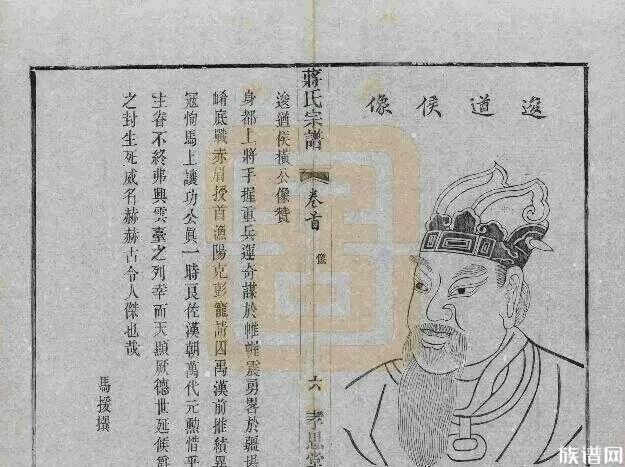 逡道侯像
蔣氏宗譜 卷首 像 六 孝思堂
逡遒侯橫公像贊
身都上將手握重兵運奇謀於帷幄震勇畧於疆場
崤底戰赤眉授首漁陽克彭寵請囚吳漢前推績異
寇恂馬上讓功公真一時良佐漢朝萬代元勳惜乎
生眷不終弗與雲臺之列幸而天顯厥德世延侯爵
之封生死威名赫赫古今人傑也哉
馬援撰
族谱网